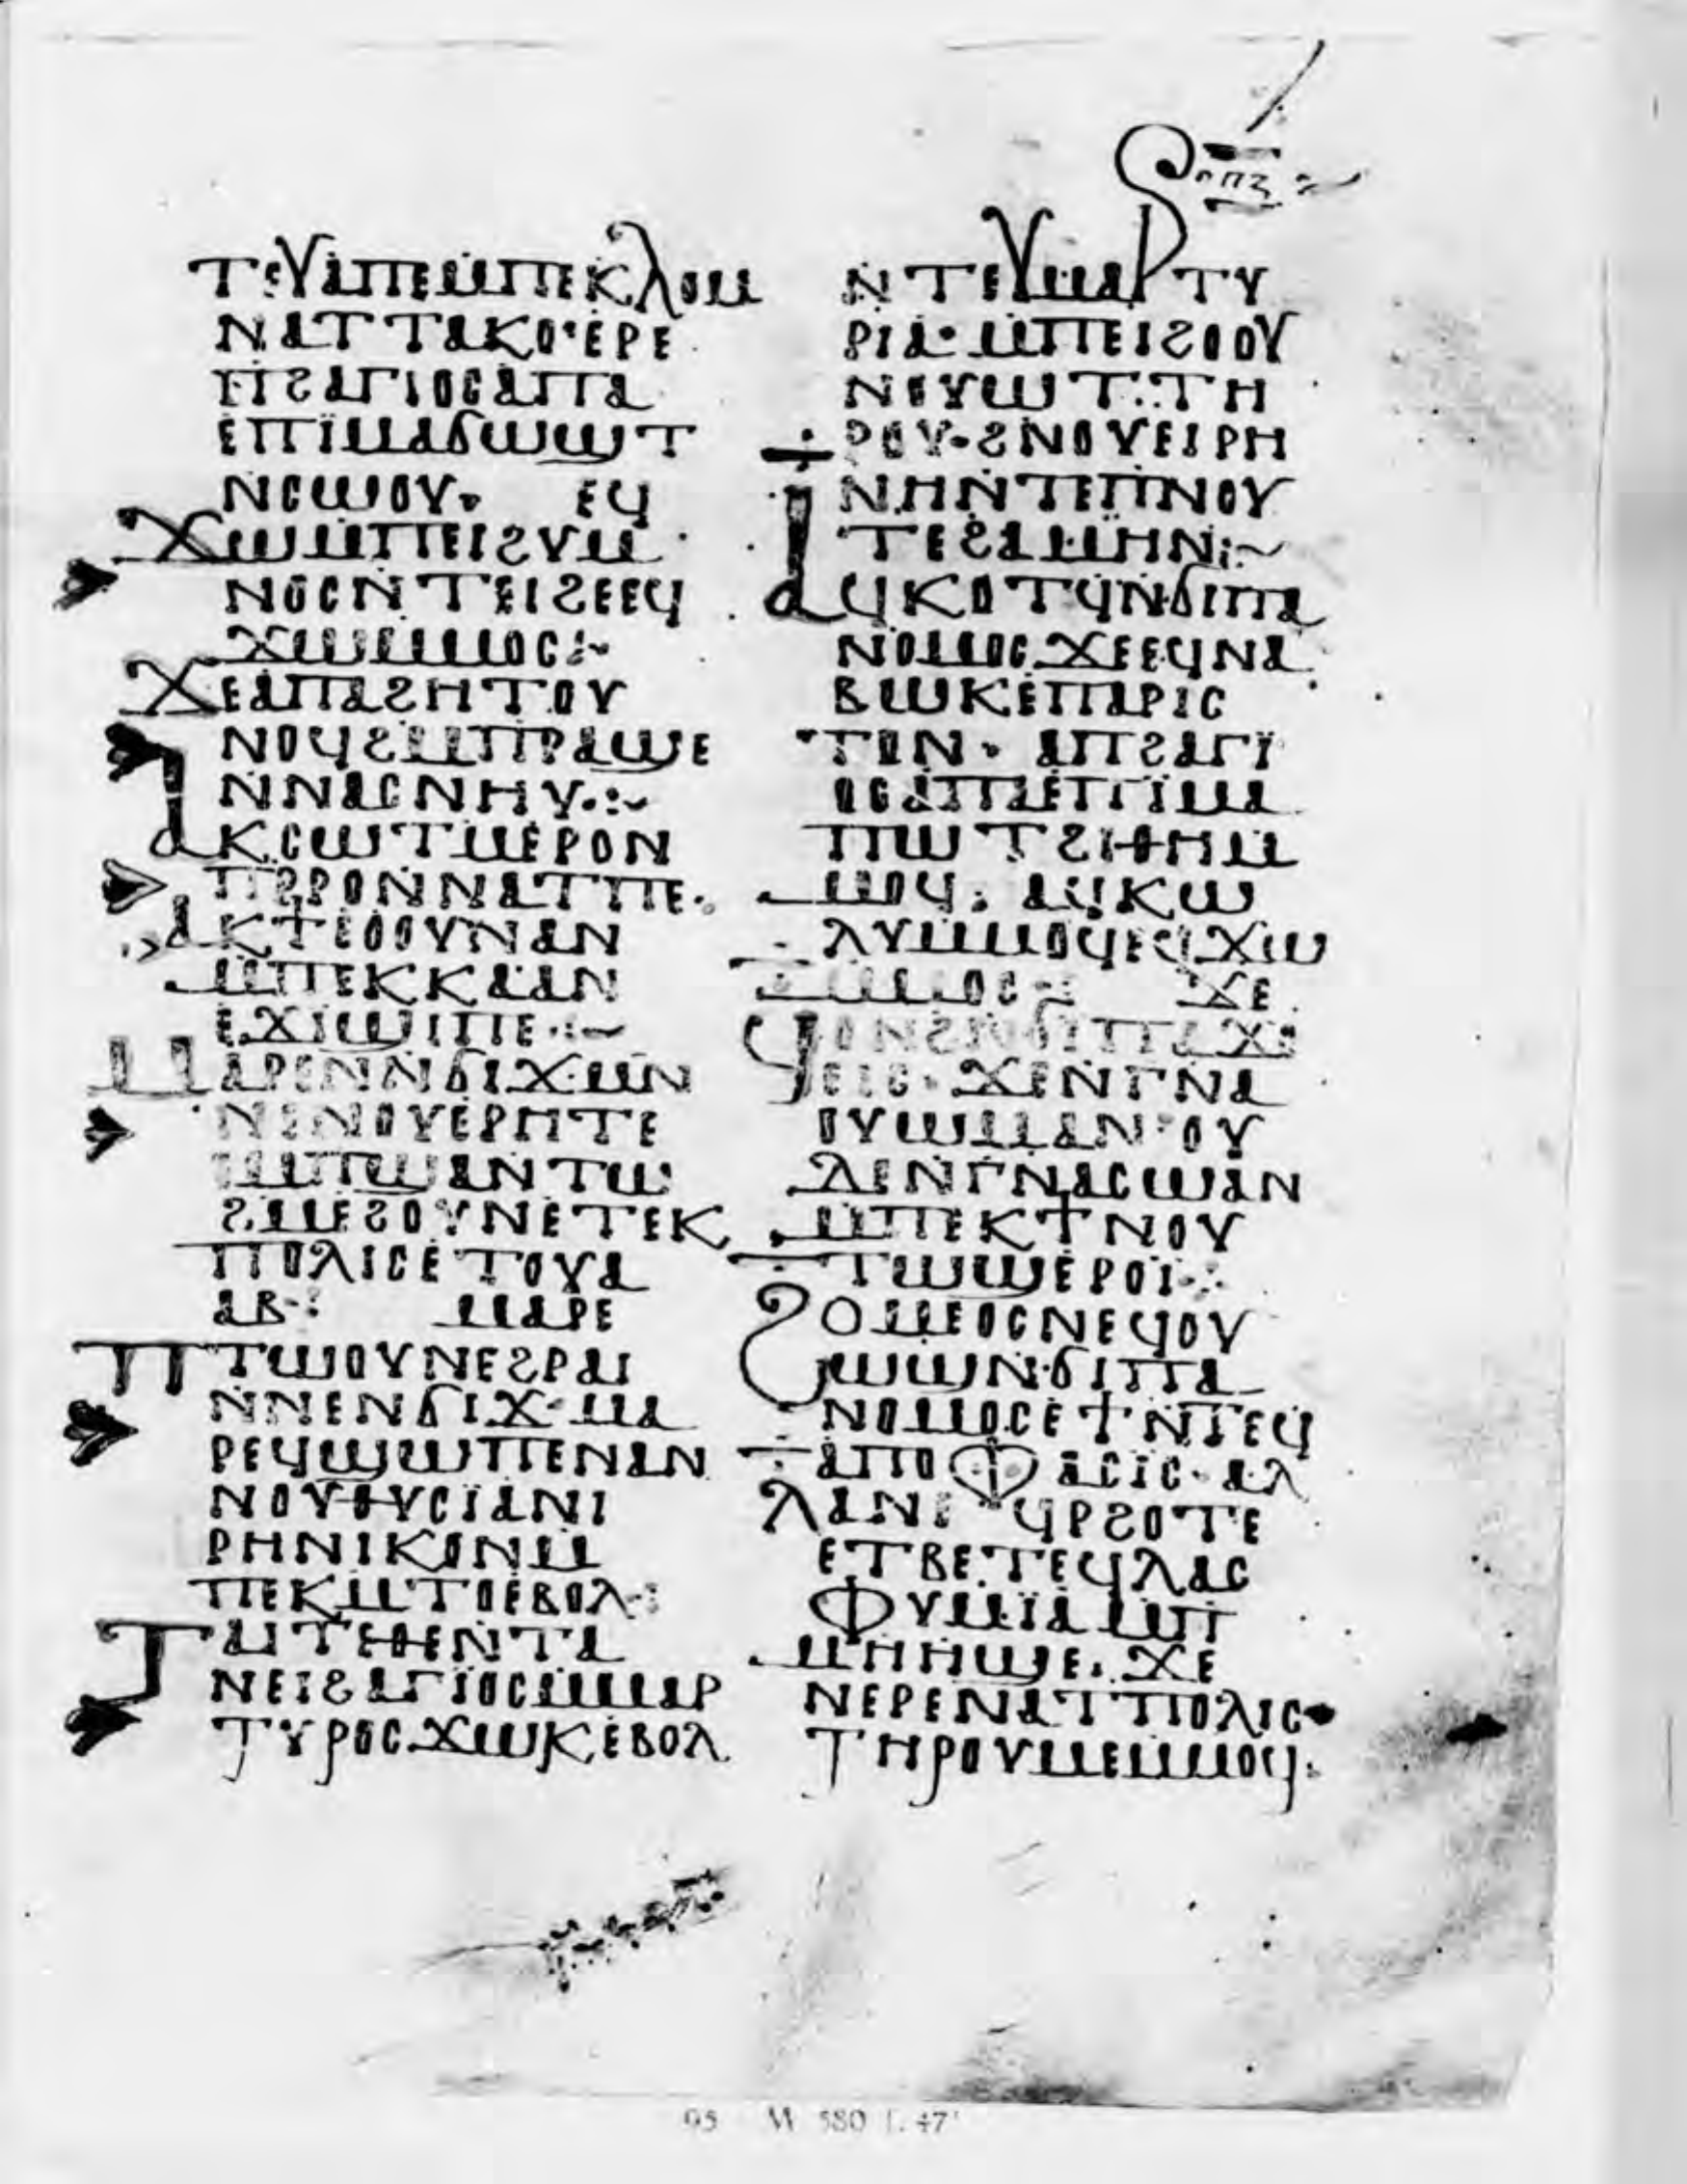 ⲧⲉⲩⲁⲡⲉⲙⲡⲉⲕⲗⲟⲙ
ⲛⲁⲧⲧⲁⲕⲟ·ⲉⲣⲉ
ⲡϩⲁⲅⲓⲟⲥⲁⲡⲁ
ⲉⲡⲓⲙⲁϭⲱϣⲧ
ⲛⲥⲱⲟⲩ· ⲉϥ
ϫⲱⲙⲡⲉⲓϩⲩⲙ
ⲛⲟⲥⲛⲧⲉⲓϩⲉⲉϥ
ϫⲱⲙⲙⲟⲥ:~
ϫⲉⲁⲡⲁϩⲏⲧⲟⲩ
ⲛⲟϥϩⲙⲡⲣⲁϣⲉ
ⲛⲛⲁⲥⲛⲏⲩ·:~
ⲁⲕⲥⲱⲧⲙⲉⲣⲟⲛ
ⲡⲣⲣⲟⲛⲛⲁⲧⲡⲉ·
ⲁⲕϯⲉⲟⲟⲩⲛⲁⲛ
ⲙⲡⲉⲕⲕⲁⲁⲛ
ⲉϫⲓϣⲓⲡⲉ·:~
ⲙⲁⲣⲉⲛⲛϭⲓϫ·ⲙⲛ
ⲛⲉⲛⲟⲩⲉⲣⲏⲧⲉ
ⲙⲡϣⲁⲛⲧⲱ
ϩⲙⲉϩⲟⲩⲛⲉⲧⲉⲕ
ⲡⲟⲗⲓⲥⲉⲧⲟⲩⲁ
ⲁⲃ·: ⲙⲁⲣⲉ
ⲡⲧⲱⲟⲩⲛⲉϩⲣⲁⲓ
ⲛⲛⲉⲛϭⲓϫ·ⲙⲁ
ⲣⲉϥϣⲱⲡⲉⲛⲁⲛ
ⲛⲟⲩⲑⲩⲥⲓⲁⲛⲓ
ⲣⲏⲛⲓⲕⲟⲛⲙ
ⲡⲉⲕⲙⲧⲟⲉⲃⲟⲗ·:
ⲧⲁⲓⲧⲉⲑⲉⲛⲧⲁ
ⲛⲉⲓϩⲁⲅⲓⲟⲥⲙⲙⲁⲣ
ⲧⲩⲣⲟⲥϫⲱⲕⲉⲃⲟⲗ
ⲛⲧⲉⲩⲙⲁⲣⲧⲩ
ⲣⲓⲁ·ⲙⲡⲉⲓϩⲟⲟⲩ
ⲛⲟⲩⲱⲧ·ⲧⲏ
ⲣⲟⲩ·ϩⲛⲟⲩⲉⲓⲣⲏ
ⲛⲏⲛⲧⲉⲡⲛⲟⲩ
ⲧⲉϩⲁⲙⲏⲛ:~
ⲁϥⲕⲟⲧϥⲛϭⲓⲡⲁ
ⲛⲟⲙⲟⲥϫⲉⲉϥⲛⲁ
ⲃⲱⲕⲉⲡⲁⲣⲓⲥ
ⲧⲟⲛ· ⲁⲡϩⲁⲅⲓ
ⲟⲥⲁⲡⲁⲉⲡⲓⲙⲁ
ⲡⲱⲧϩⲓⲑⲏⲙ
ⲙⲟϥ· ⲁϥⲕⲱ
ⲗⲩⲙⲙⲟϥⲉϥϫⲱ
ⲙⲙⲟⲥ:~ ϫⲉ
ϥⲟⲛϩⲛϭⲓⲡⲁϫⲟ
ⲉⲓⲥ·ϫⲉⲛⲅⲛⲁ
ⲟⲩⲱⲙⲁⲛ·ⲟⲩ
ⲇⲉⲛⲅⲛⲁⲥⲱⲁⲛ
ⲙⲡⲉⲕϯⲛⲟⲩ
ⲧⲱϣⲉⲣⲟⲓ·:
ϩⲟⲙⲉⲟⲥⲛⲉϥⲟⲩ
ⲱϣⲛϭⲓⲡⲁ
ⲛⲟⲙⲟⲥⲉϯⲛⲧⲉϥ
ⲁⲡⲟⲫⲁⲥⲓⲥ·ⲁⲗ
ⲗⲁⲛⲉϥⲣϩⲟⲧⲉ
ⲉⲧⲃⲉⲧⲉϥⲗⲁⲥ
ⲫⲩⲙⲓⲁⲙⲡ
ⲙⲏⲏϣⲉ·ϫⲉ
ⲛⲉⲣⲉⲛⲁⲧⲡⲟⲗⲓⲥ
ⲧⲏⲣⲟⲩⲙⲉⲙⲙⲟϥ·
95 M 580 f. 47ʳ